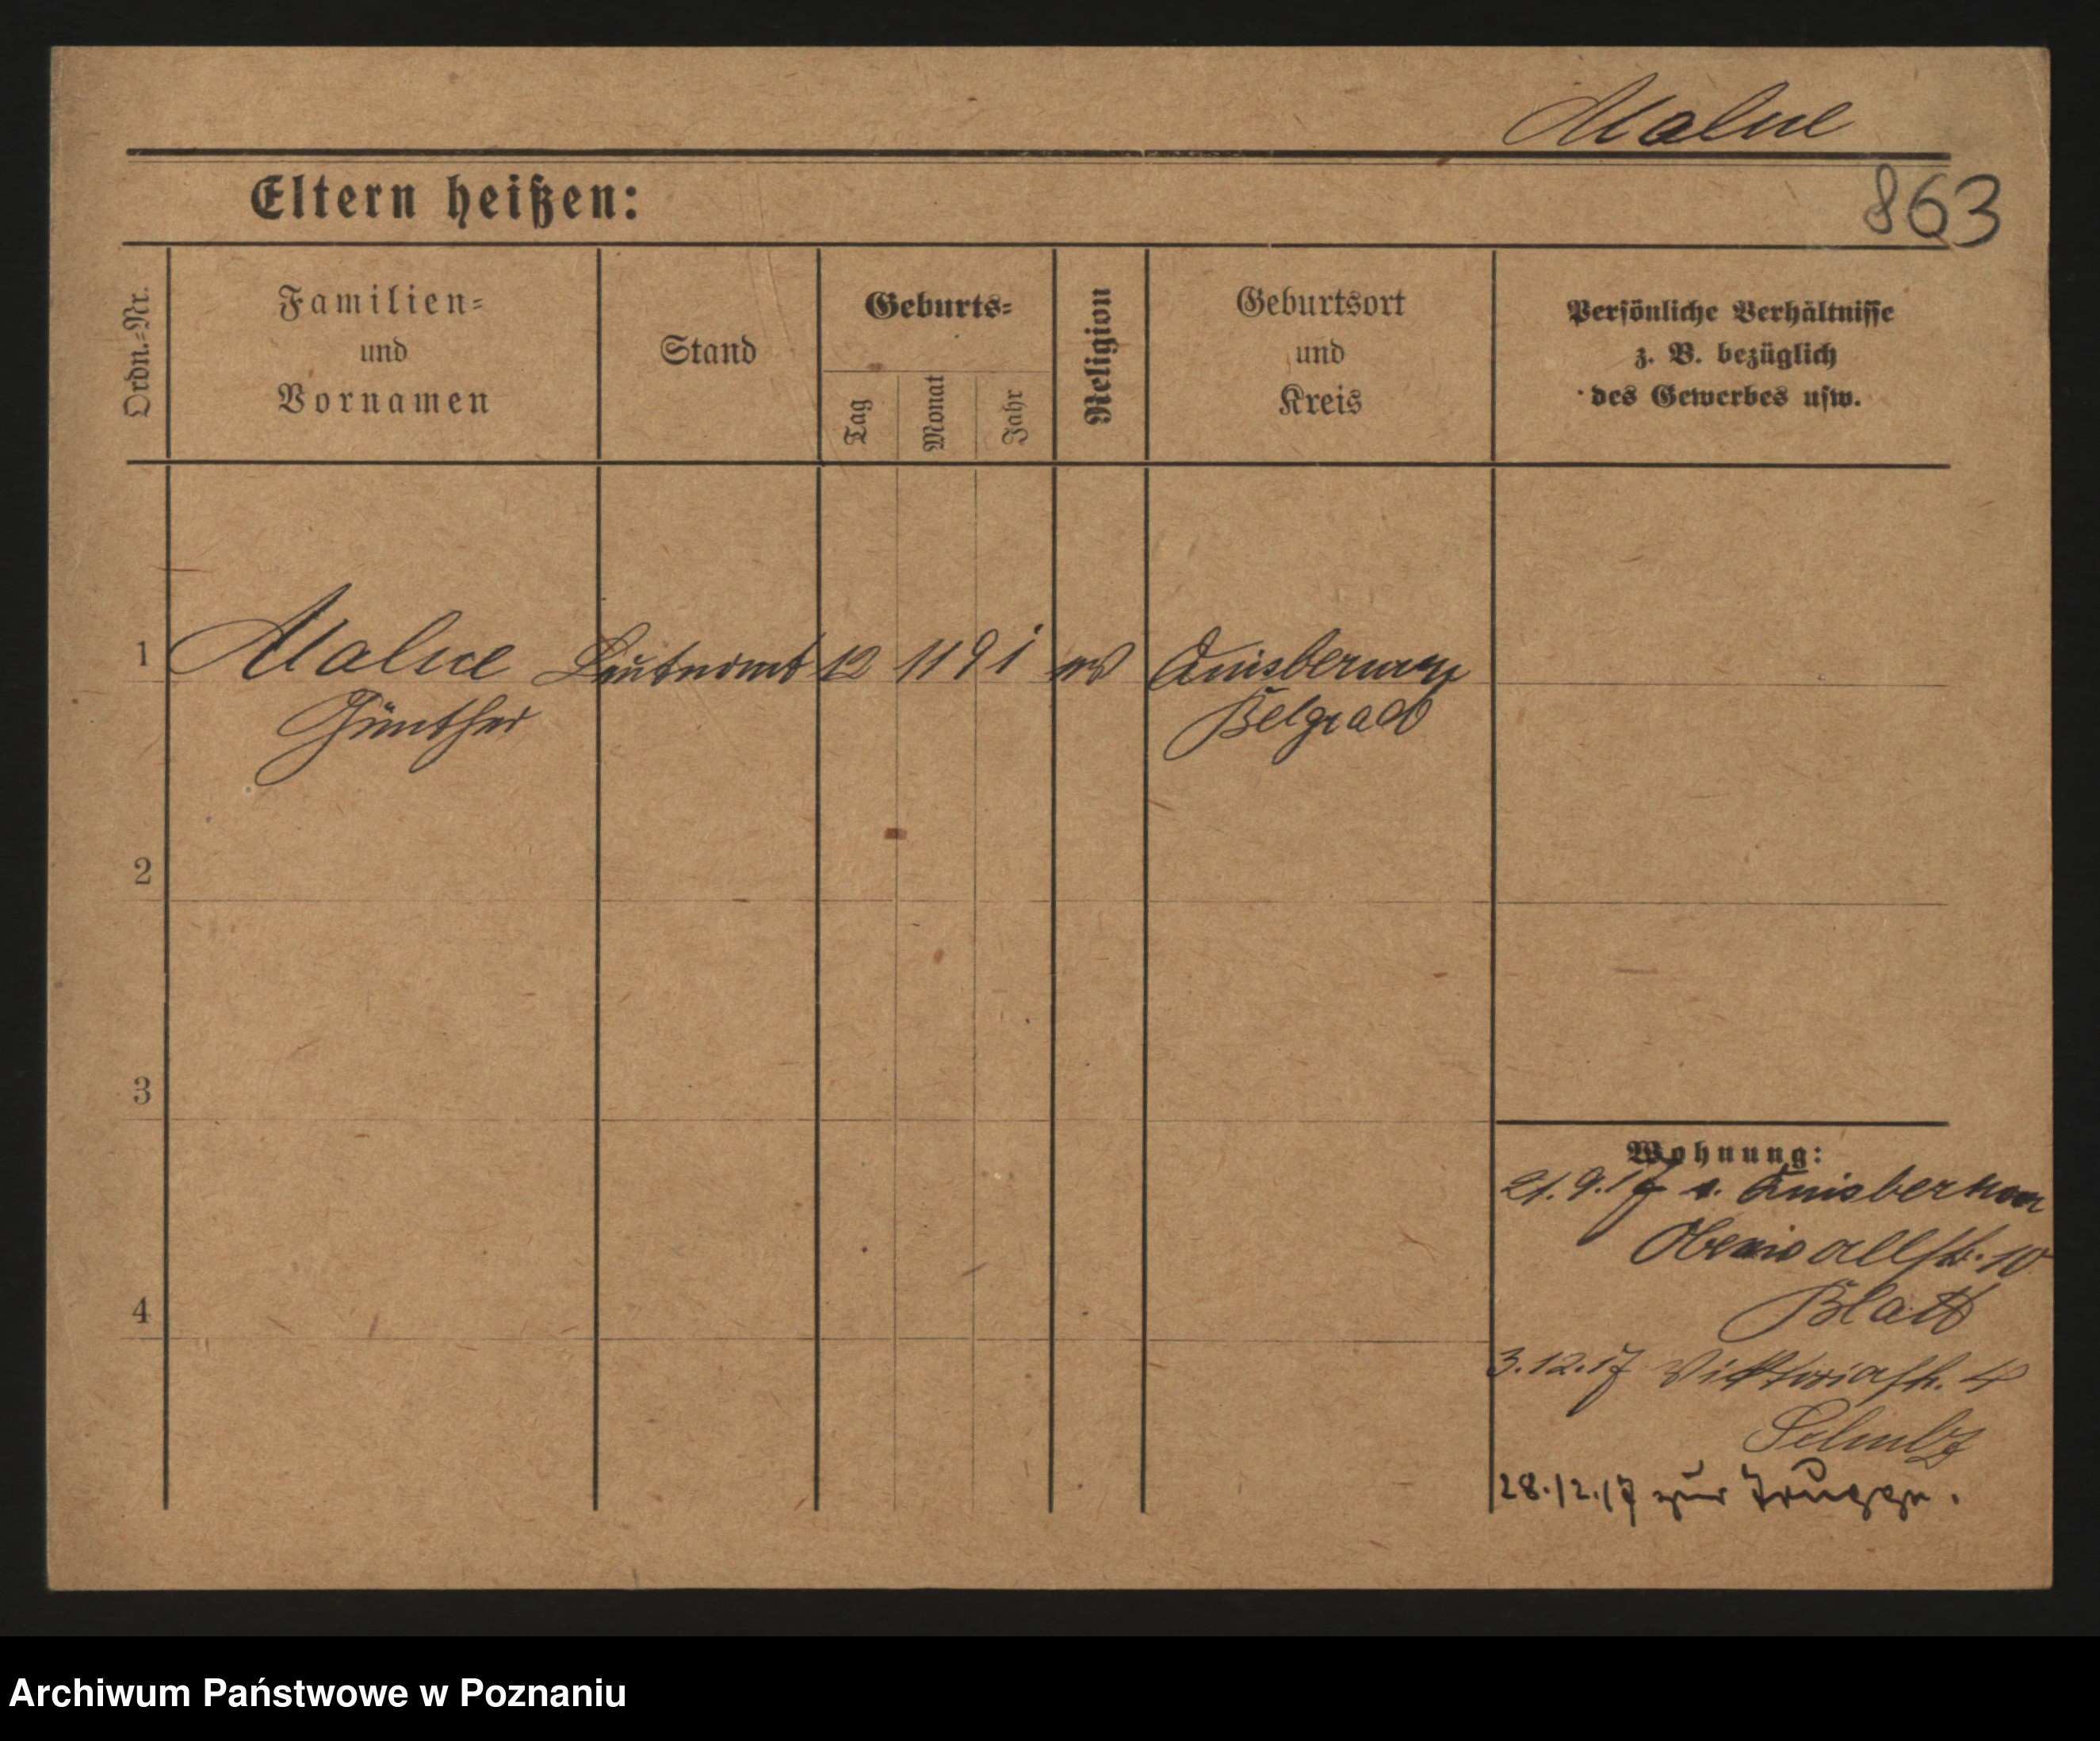 Malue
863
Eltern heißen:
Ordn.=Nr.
Familien=
und
Vornamen
Stand
Geburts=
Tag
Monat
Jahr
Religion
Geburtsort
und
Kreis
Persönliche Verhältnisse
z. B. bezüglich
des Gewerbes usw.
1 Malue Leutnant 12 11 91 ev
Günther Belgrad
2
3
4
Wohnung:
21.9.17 v.
10
Blatt
3.12.17 Viktoriastr. 4
Schulz
28.12.17 zur Truppe.
Archiwum Państwowe w Poznaniu